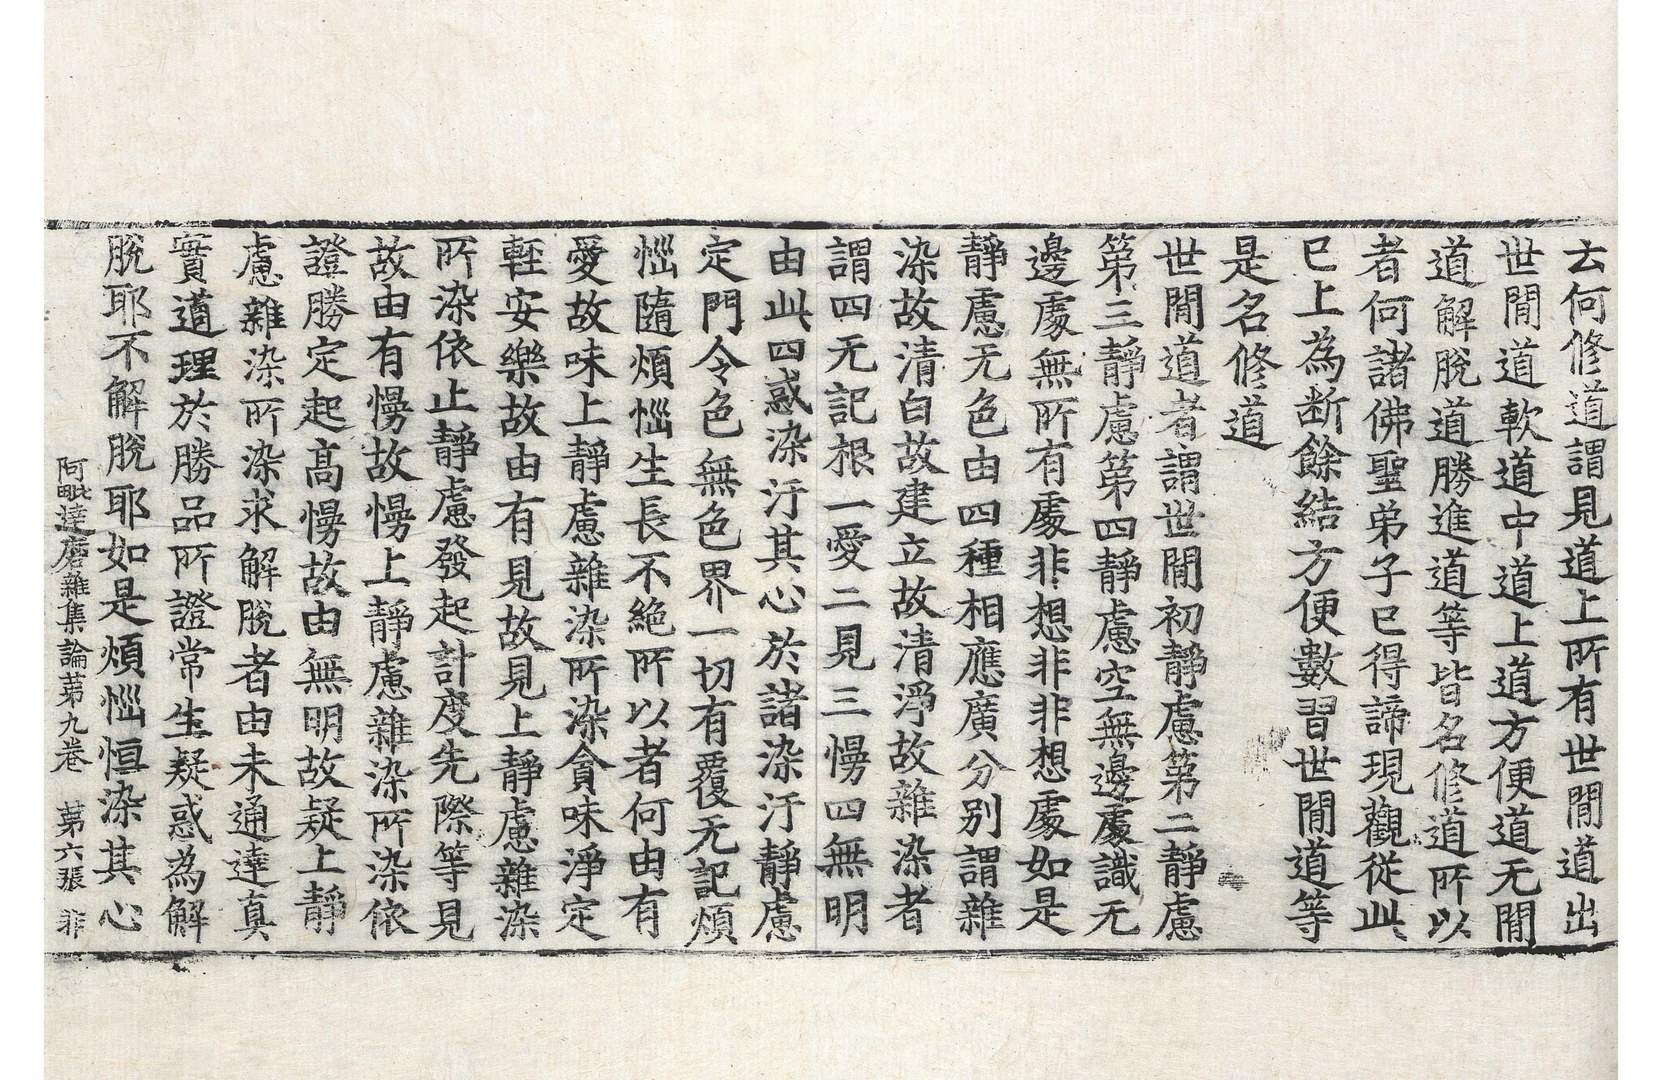 云何修道謂見道上所有世間道出
世間道軟道中道上道方便道无間
道解脫道勝進道等皆名修道所以
者何諸佛聖弟子已得諦現觀從此
已上為断餘結方便數習世間道等
是名修道
世間道者謂世間初靜慮第二靜慮
第三靜慮第四靜慮空無邊處識无
邊處無所有處非想非非想處如是
靜慮无色由四種相應廣分别謂雜
染故清白故建立故清淨故雜染者
謂四无記根一愛二見三慢四無明
由此四惑染汙其心於諸染汙靜慮
定門令色無色界一切有覆无記煩
惱隨煩惱生長不絶所以者何由有
愛故味上靜慮雜染所染貪味淨定
輕安樂故由有見故見上靜慮雜染
所染依止靜慮發起計度先際等見
故由有慢故慢上靜慮雜染所染依
證勝定起高慢故由無明故疑上靜
慮雜染所染求解脫者由未通達真
實道理於勝品所證常生疑惑為解
脫耶不解脫耶如是煩惱恒染其心
阿毗達磨雜集論第九卷 第六張 非